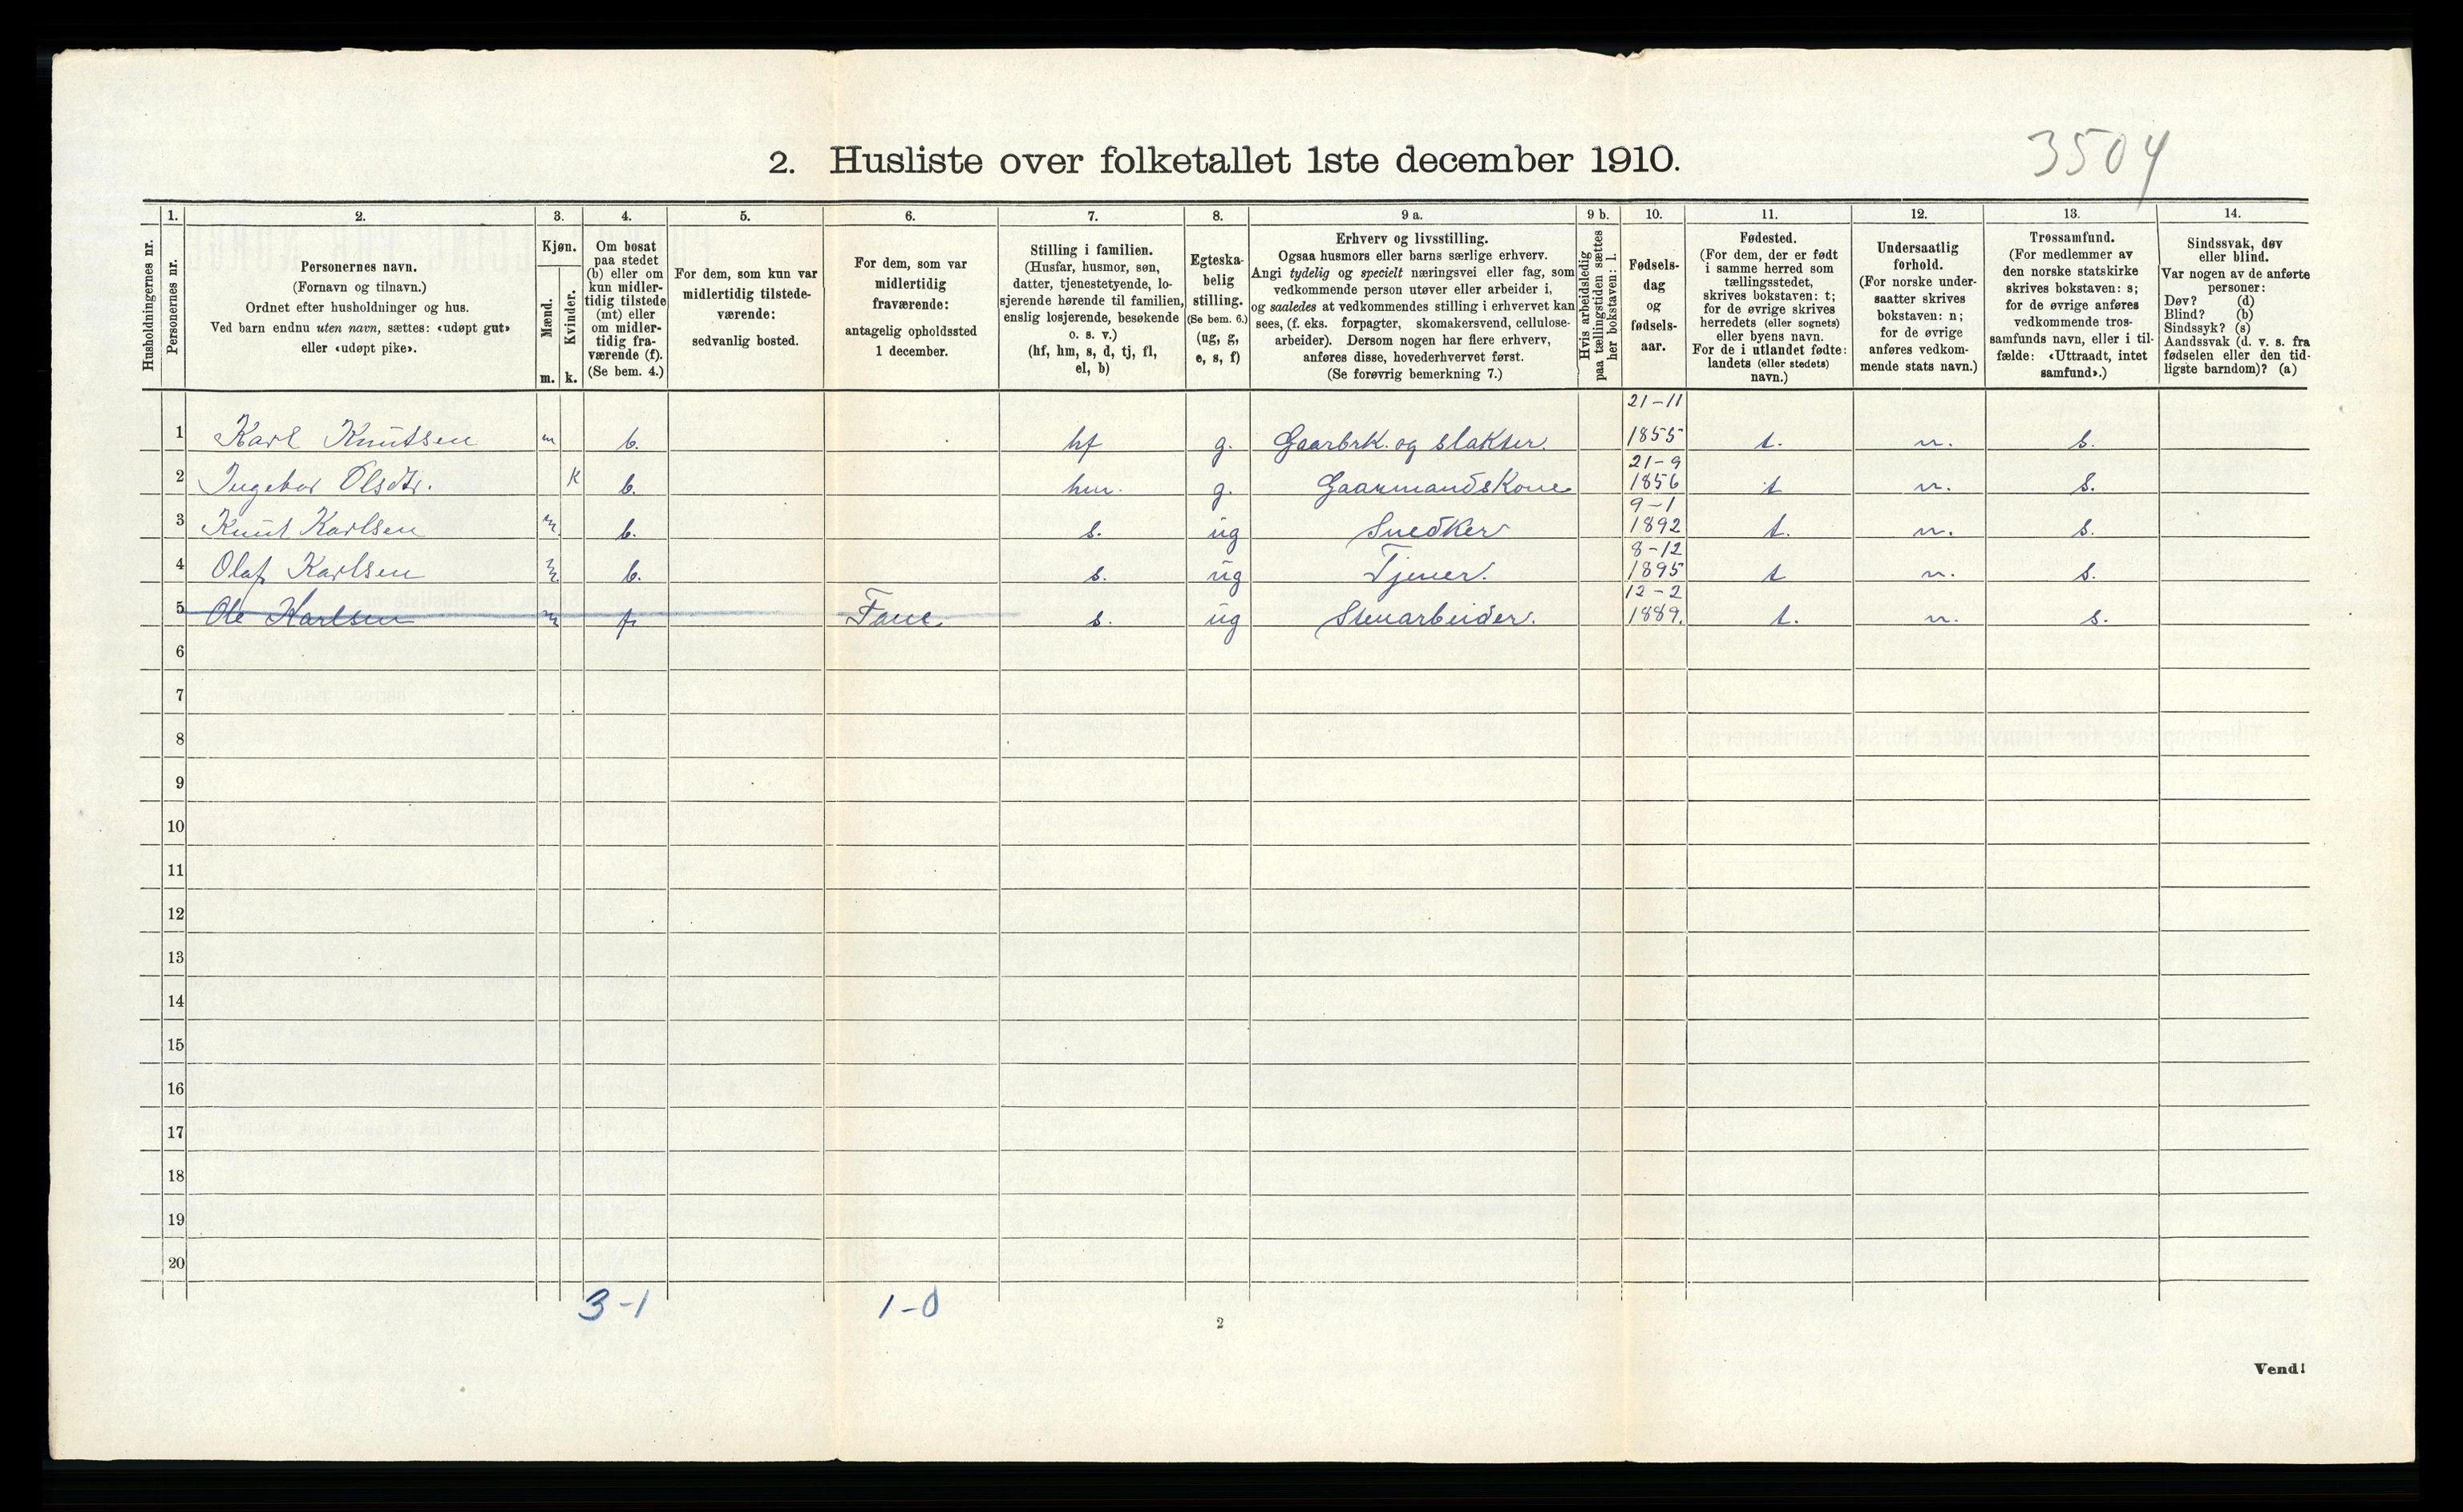 3504
2. Husliste over folketallet 1ste december 1910.
Husholdningernes nr.
1. Personernes nr.
2. Personernes navn.
(Fornavn og tilnavn.)
Ordnet efter husholdninger og hus.
Ved barn endnu uten navn, sættes: «udøpt gut»
eller «udøpt pike».
3. Kjøn.
Mænd. m.
Kvinder. k.
4. Om bosat
paa stedet
(b) eller om
kun midler-
tidig tilstede
(mt) eller
om midler-
tidig fra-
værende (f).
(Se bem. 4.)
5. For dem, som kun var
midlertidig tilstede-
værende:
sedvanlig bosted.
6. For dem, som var
midlertidig
fraværende:
antagelig opholdssted
1 december.
7. Stilling i familien.
(Husfar, husmor, søn,
datter, tjenestetyende, lo-
sjerende hørende til familien,
enslig losjerende, besøkende
o. s. v.)
(hf, hm, s, d, tj, fl,
el, b)
8. Egteska-
belig
stilling.
(Se bem. 6.)
(ug, g,
e, s, f)
9 a. Erhverv og livsstilling.
Ogsaa husmors eller barns særlige erhverv.
Angi tydelig og specielt næringsvei eller fag, som
vedkommende person utøver eller arbeider i,
og saaledes at vedkommendes stilling i erhvervet kan
sees, (f. eks. forpagter, skomakersvend, cellulose-
arbeider). Dersom nogen har flere erhverv,
anføres disse, hovederhvervet først.
(Se forøvrig bemerkning 7.)
9 b. Hvis arbeidsledig
paa tællingstiden sættes
her bokstaven: l.
10. Fødsels-
dag
og
fødsels-
aar.
11. Fødested.
(For dem, der er født
i samme herred som
tællingsstedet,
skrives bokstaven: t;
for de øvrige skrives
herredets (eller sognets)
eller byens navn.
For de i utlandet fødte:
landets (eller stedets)
navn.)
12. Undersaatlig
forhold.
(For norske under-
saatter skrives
bokstaven: n;
for de øvrige
anføres vedkom-
mende stats navn.)
13. Trossamfund.
(For medlemmer av
den norske statskirke
skrives bokstaven: s;
for de øvrige anføres
vedkommende tros-
samfunds navn, eller i til-
fælde: «Uttraadt, intet
samfund».)
14. Sindssvak, døv
eller blind.
Var nogen av de anførte
personer:
Døv? (d)
Blind? (b)
Sindssyk? (s)
Aandssvak (d. v. s. fra
fødselen eller den tid-
ligste barndom)? (a)
1 Karl Knutsen m b. hf g. Gaarbrk. og slakter. 21-11 1855 t. n. s.
2 Ingebor Olsdtr. k b. hm. g. Gaarmandskone 21-9 1856 t n. s.
3 Knut Karlsen m b. s. ug Snedker 9-1 1892 t. n. s.
4 Olaf Karlsen m b. s. ug Tjener. 8-12 1895 t n. s.
5 Ole Karlsen m f. Fane s. ug Stenarbeider. 12-2 1889. t. n. s.
6
7
8
9
10
11
12
13
14
15
16
17
18
19
20
3-1 1-0
2
Vend!